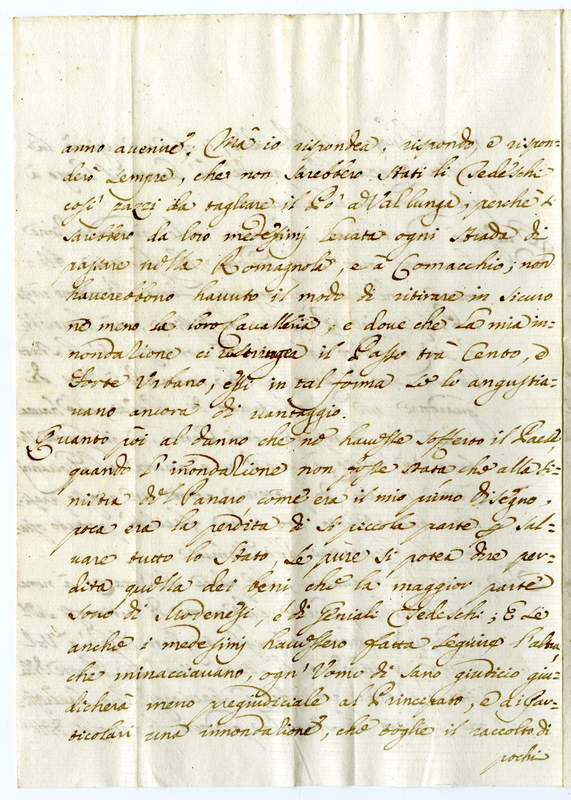 anno avenire; Mà io rispondea, rispondo, e rispon=
derò sempre, che non sarebbero stati li Tedeschi
così pazzi da tagliare il Pò à Vallunga, perche si
sarebbero da loro medesimi levata ogni strada di
passare nella Romagnola, e à Comacchio; non
haverebbono havuto il modo di ritirare in sicuro
nè meno la loro Cavalleria, e dove che la mia in=
nondazione ci restringea il Passo trà Cento, e
Forte Urbano, essi in tal forma se lo angustia=
vano ancora di vantaggio.
Quanto poi al danno che nè havesse sofferto il Paese,
quando l'inondazione non fosse stata che alla si=
nistra del Panaro come era il mio primo disegno,
poca era la perdita di sì piccola parte p sal=
vare tutto lo Stato, se pure si potea dire per=
dita quella dei beni che la maggior parte
sono di Modenesi, e di Geniali Tedeschi; E se
anche i medesimi havessero fatta seguire l'altra,
che minacciavano, ogn'Uomo di sano giudicio giu=
dicherà meno pregiudiciale al Principato, e à Par=
ticolari una innondazione, che toglie il raccolto di
pochi